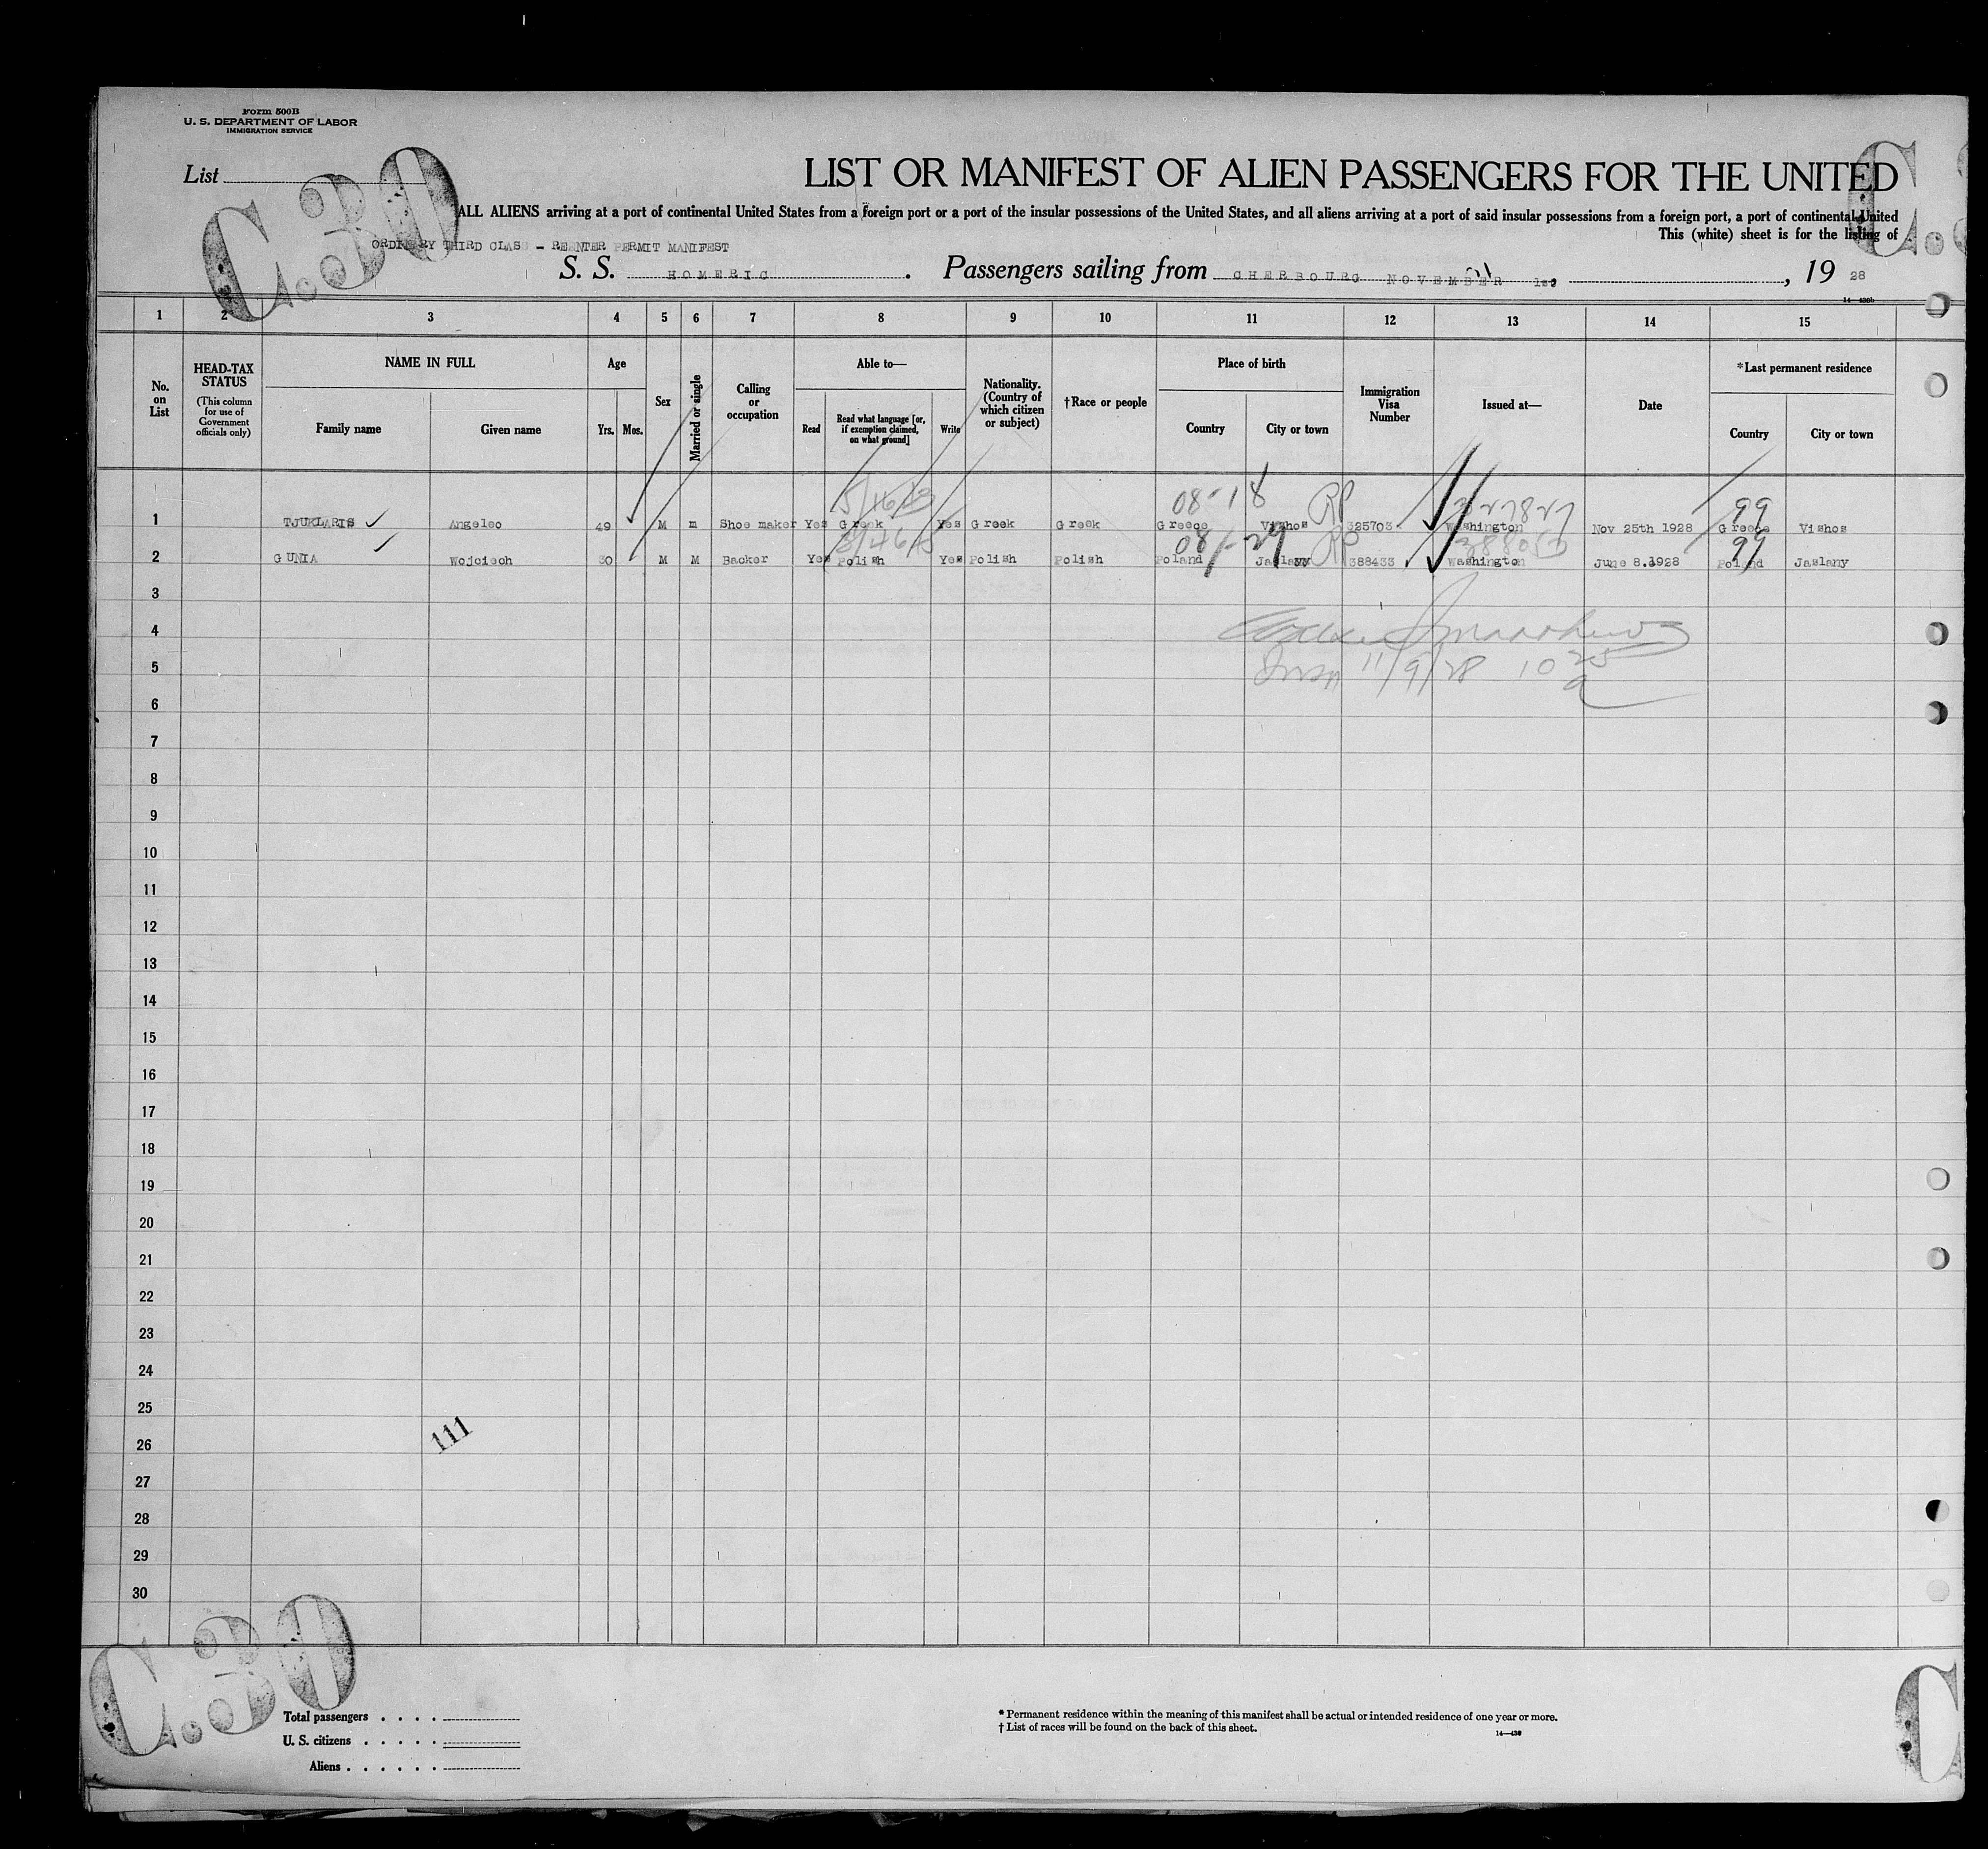 Form 500B
U. S. DEPARTMENT OF LABOR
IMMIGRATION SERVICE
List
C.30
C.
LIST OR MANIFEST OF ALIEN PASSENGERS FOR THE UNITED
ALL ALIENS arriving at a port of continental United States from a foreign port or a port of the insular possessions of the United States, and all aliens arriving at a port of said insular possessions from a foreign port, a port of continental United
This (white) sheet is for the listing of
ORDINARY THIRD CLASS – REENTER PERMIT MANIFEST
S. S. HOMERIC. Passengers sailing from CHERBOURG NOVEMBER, 19 28
14—430b
1 2 3 4 5 6 7 8 9 10 11 12 13 14 15
No. on List
HEAD-TAX STATUS (This column for use of Government officials only)
NAME IN FULL
Family name Given name
Age
Yrs. Mos.
Sex
Married or single
Calling or occupation
Able to—
Read Read what language [or, if exemption claimed, on what ground] Write
Nationality. (Country of which citizen or subject)
†Race or people
Place of birth
Country City or town
Immigration Visa Number
Issued at—
Date
*Last permanent residence
Country City or town
08-18 RP 99
1 TJUKLARIS Angelco 49 M m Shoe maker Yes Greek Yes Greek Greek Greece Vizhos 325703 Washington Nov 25th 1928 Greece Vizhos
08-29 RP 99
2 GUNIA Wojciech 30 M M Backer Yes Polish Yes Polish Polish Poland Jaslany 388433 Washington June 8.1928 Poland Jaslany
3
4
5
11/9/28 10 25 a
6
7
8
9
10
11
12
13
14
15
16
17
18
19
20
21
22
23
24
25
26
111
27
28
29
30
C.30
C
Total passengers . . . .
U. S. citizens . . . . .
Aliens . . . . . .
* Permanent residence within the meaning of this manifest shall be actual or intended residence of one year or more.
† List of races will be found on the back of this sheet.
14—430